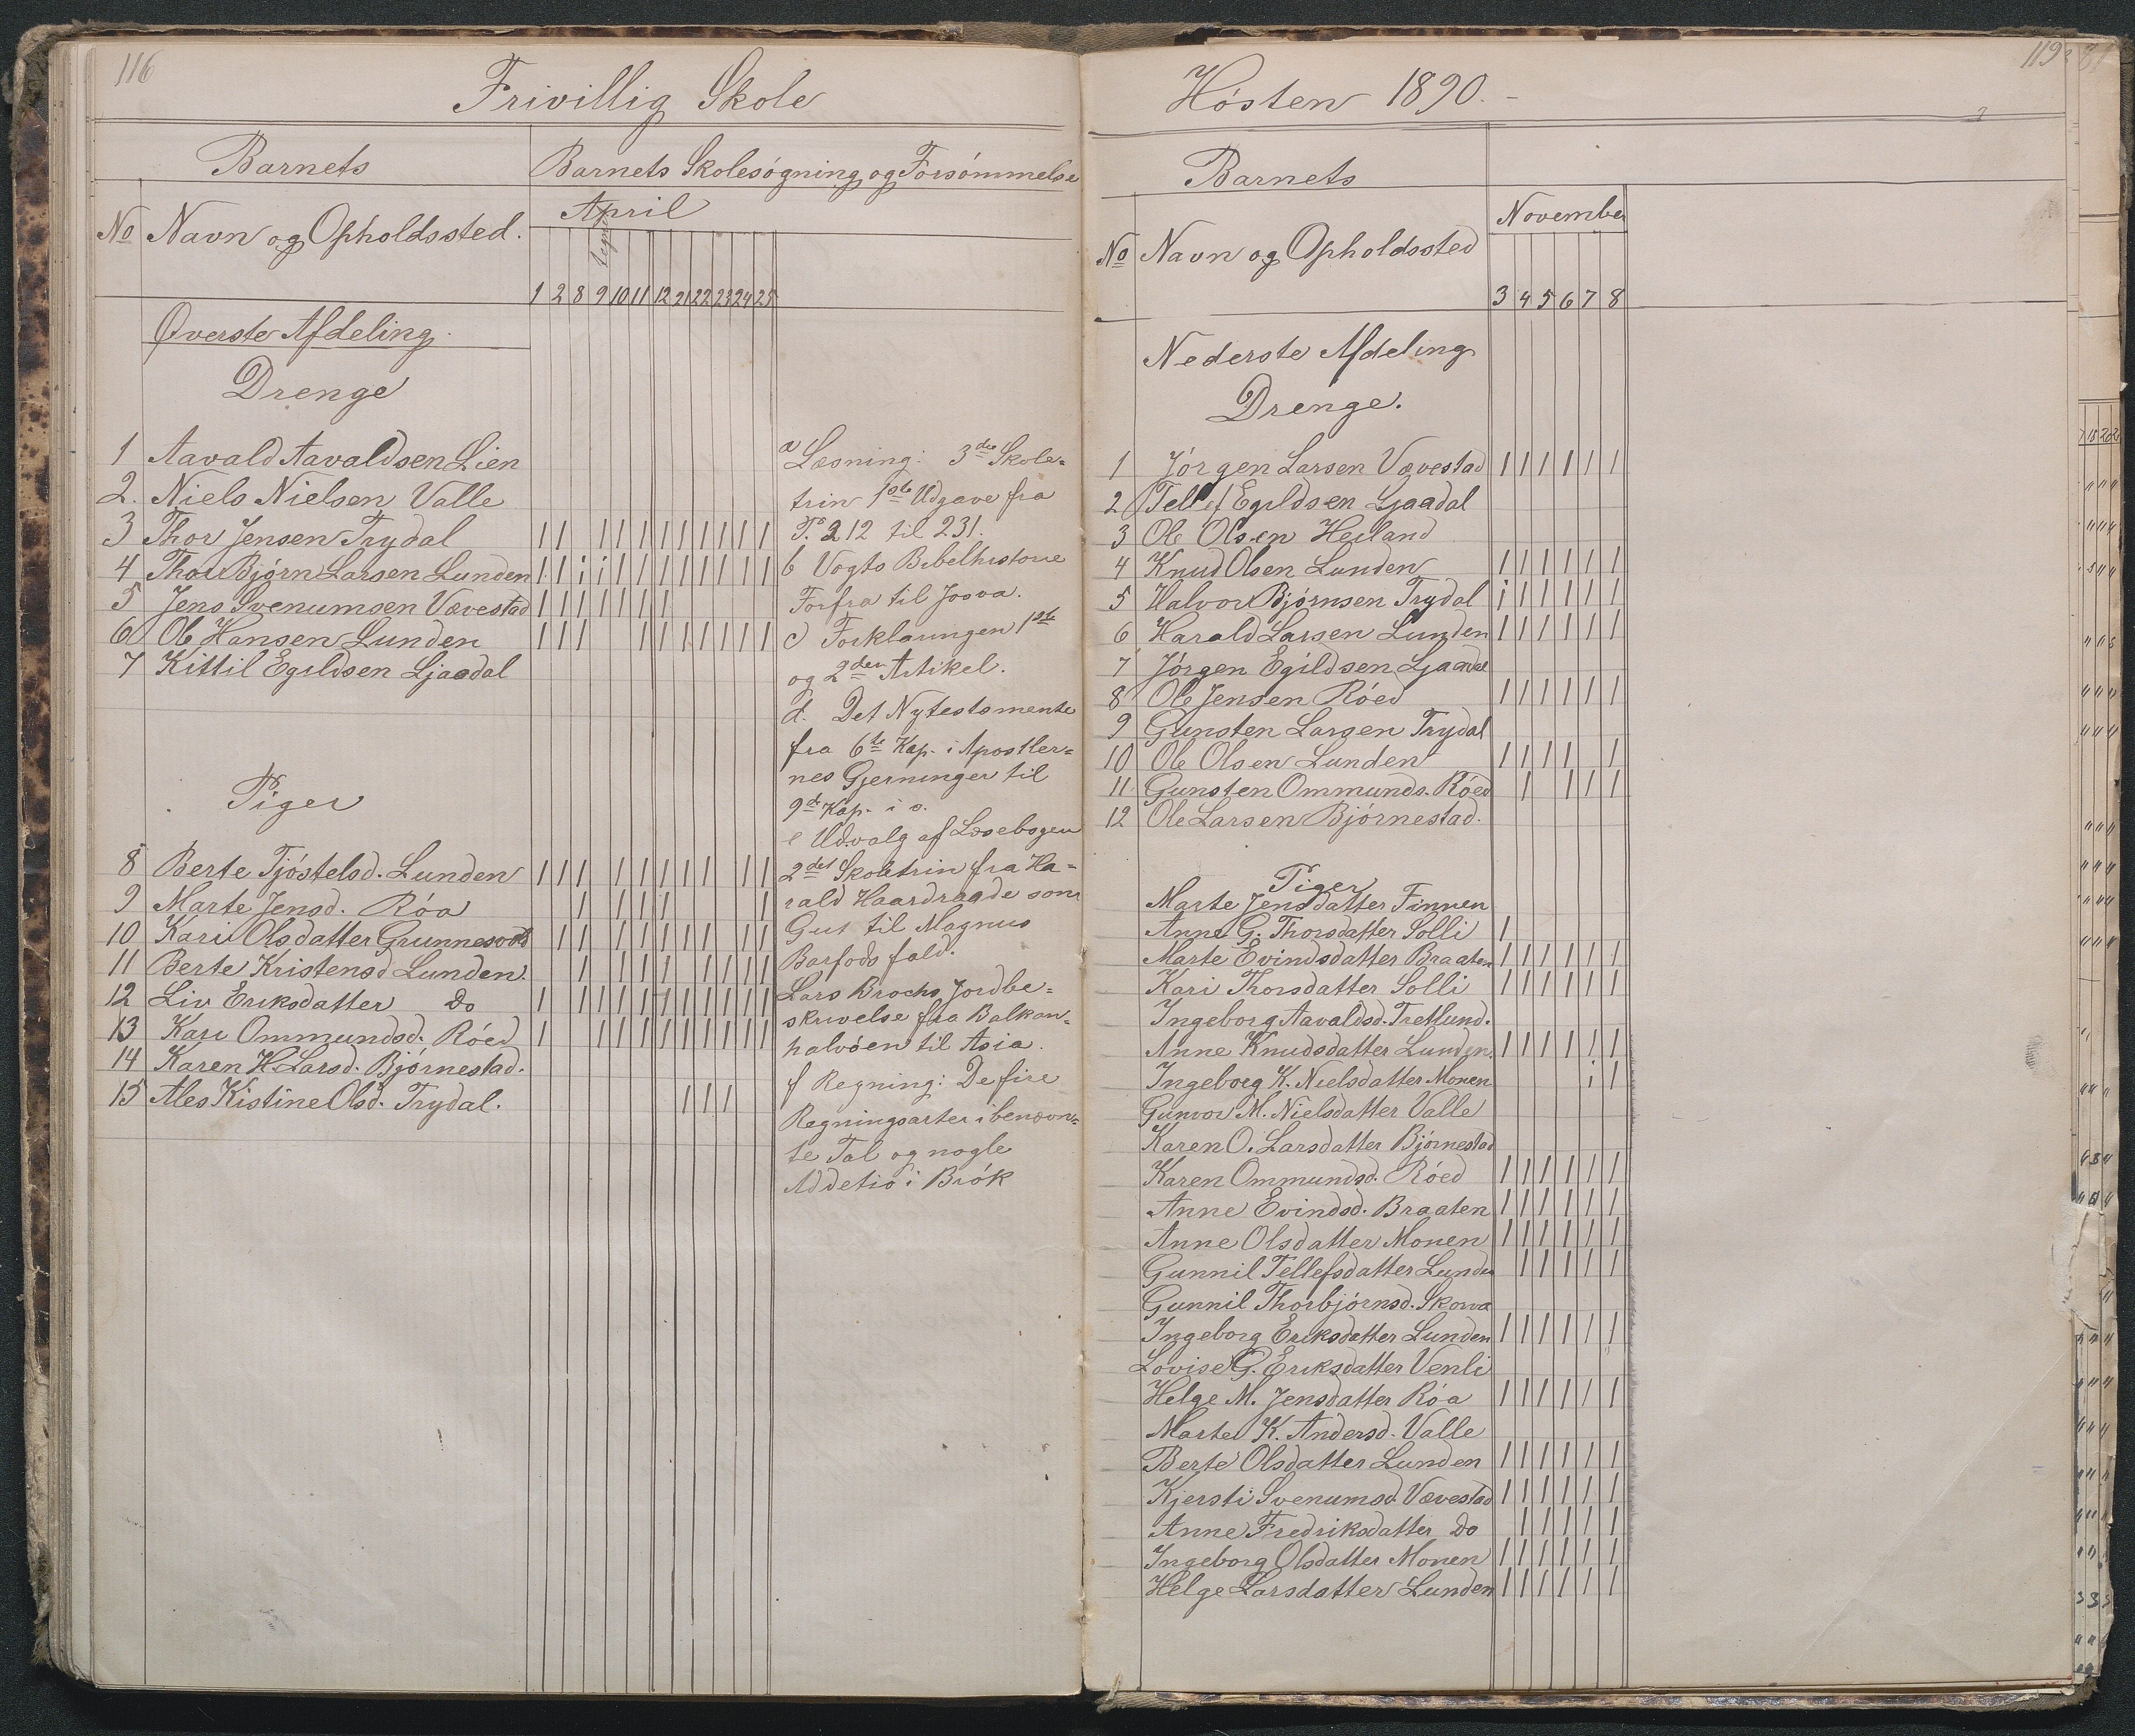 116
Frivillig Skole
Barnets
Barnets Skolesøgning og Forsømmelse
April
No Navn og Opholdssted.
1 2 8 9 10 11 12 21 22 23 24 25
Øverste Afdeling.
Drenge
1 Aavald Aavaldsen Lien
2. Niels Nielsen Valle
3 Thor Jensen Trydal 1 1 1 1 1 1 1 1 1 1 1
4 Thor Bjørn Larsen Lunden 1 1 i i 1 1 1 1 1 1 1 1
5 Jens Svenumsen Vævestad 1 1 1 1 1 1 1
6 Ole Hansen Lunden 1 1 1 1 1 1 1 1 1 1
7 Kittil Egildsen Ljaadal
Piger
8 Berte Tjøstelsd. Lunden 1 1 1 1 1 1 1 1 1 1
9 Marte Jensd. Róa 1 1 1 1 1
10 Kari Olsdatter Grunnesvold 1 1 1 1 1 1 1 1 1
11 Berte Kristensd Lunden. 1 1 1 1 1 1 1 1
12 Liv Eriksdatter Do 1 1 1 1 1 1 1 1 1 1 1
13 Kari Ommundsd. Róed 1 1 1 1 1 1 1 1 1 1
14 Karen H. Larsd. Bjørnestad.
15 Ales Kistine Olsd. Trydal. 1 1 1
a Læsning: 3die Skole=
trin 1ste Udgave fra
P. 212 til 231.
b Vogts Bibelhistorie
Forfra til Josva.
c Forklaringen 1ste
og 2den Artikel.
d. Det Nytestamente
fra 6te Kap. i Apostler=
nes Gjerninger til
9de Kap. i s.
e Udvalg af Læsebogen
2det Skoletrin fra Ha=
rald Haardraade som
Gut til Magnus
Barfods fald.
Lars Brochs Jordbe=
skrivelse fra Balkan=
halvøen til Asia.
f Regning: De fire
Regningsarter i benævn=
te Tal og nogle
Addetio i Brøk
119
Høsten 1890.
Barnets
November
No Navn og Opholdssted
3 4 5 6 7 8
Nederste Afdeling
Drenge.
1 Jørgen Larsen Vævestad 1 1 1 1 1 1
2 Tellef Egildsen Ljaadal
3 Ole Olsen Heiland
4 Knud Olsen Lunden 1 1 1 1 1 1
5 Halvor Bjørnsen Trydal i 1 1 1 1 1
6 Harald Larsen Lunden 1 1 1 1 1 1
7 Jørgen Egildsen Ljaadal
8 Ole Jensen Røed 1 1 1 1 1 1
9 Gunsten Larsen Trydal
10 Ole Olsen Lunden 1 1 1 1 1
11. Gunsten Ommunds. Røed 1 1 1 1
12 Ole Larsen Bjørnestad.
Piger
Marte Jensdatter Finnen
Anne G. Thorsdatter Solli 1
Marte Evindsdatter Braaten 1 1 1 1 1 1
Kari Thorsdatter Solli 1 1 1 1 1 1
Ingeborg Aavaldsd. Tretlund.
Anne Knudsdatter Lunden. 1 1 1 1 1 1
Ingeborg K. Nielsdatter Monen i 1
Gunvor M. Nielsdatter Valle
Karen O. Larsdatter Bjørnestad
Karen Ommundsd. Róed 1 1 1 1 1 1
Anne Evindsd. Braaten 1 1 1 1 1 1
Anne Olsdatter Monen 1 1 1 1 1 1
Gunnil Tellefsdatter Lunden 1 1 1 1 1
Gunnil Thorbjørnsd. Skorva
Ingeborg Eriksdatter Lunden 1 1 1 1 1 1
Lovise G. Eriksdatter Venli
Helge M. Jensdatter Róa 1 1 1 1 1 1
Marte K. Andersd. Valle
Berte Olsdatter Lunden 1 1 1 1 1 1
Kjersti Svenumsd. Vævestad 1 1 1 1 1 1
Anne Fredriksdatter Do 1 1 1 1 1
Ingeborg Olsdatter Monen 1 1 1 1 1 1
Helge Larsdatter Lunden 1 1 1 1 1 1